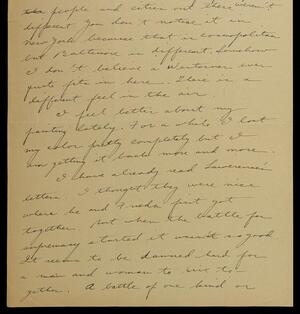 the people and cities out there aren't
different. You don't notice it in
New York because that is cosmopolitan
but Baltimore is different. Somehow
I don't believe a Westerner ever
quite fits in here. There is a
different feel in the air.
I feel better about my
painting lately. For a while I lost
my color pretty completely but I
am getting it back more and more.
I have already read Lawrence's
letters. I thought they were nice
where he and Frieda first got
together. But when the battle for
supremacy started it wasn't so good
It seems to be damned hard for
a man and woman to live to-
gether. A battle of one kind or